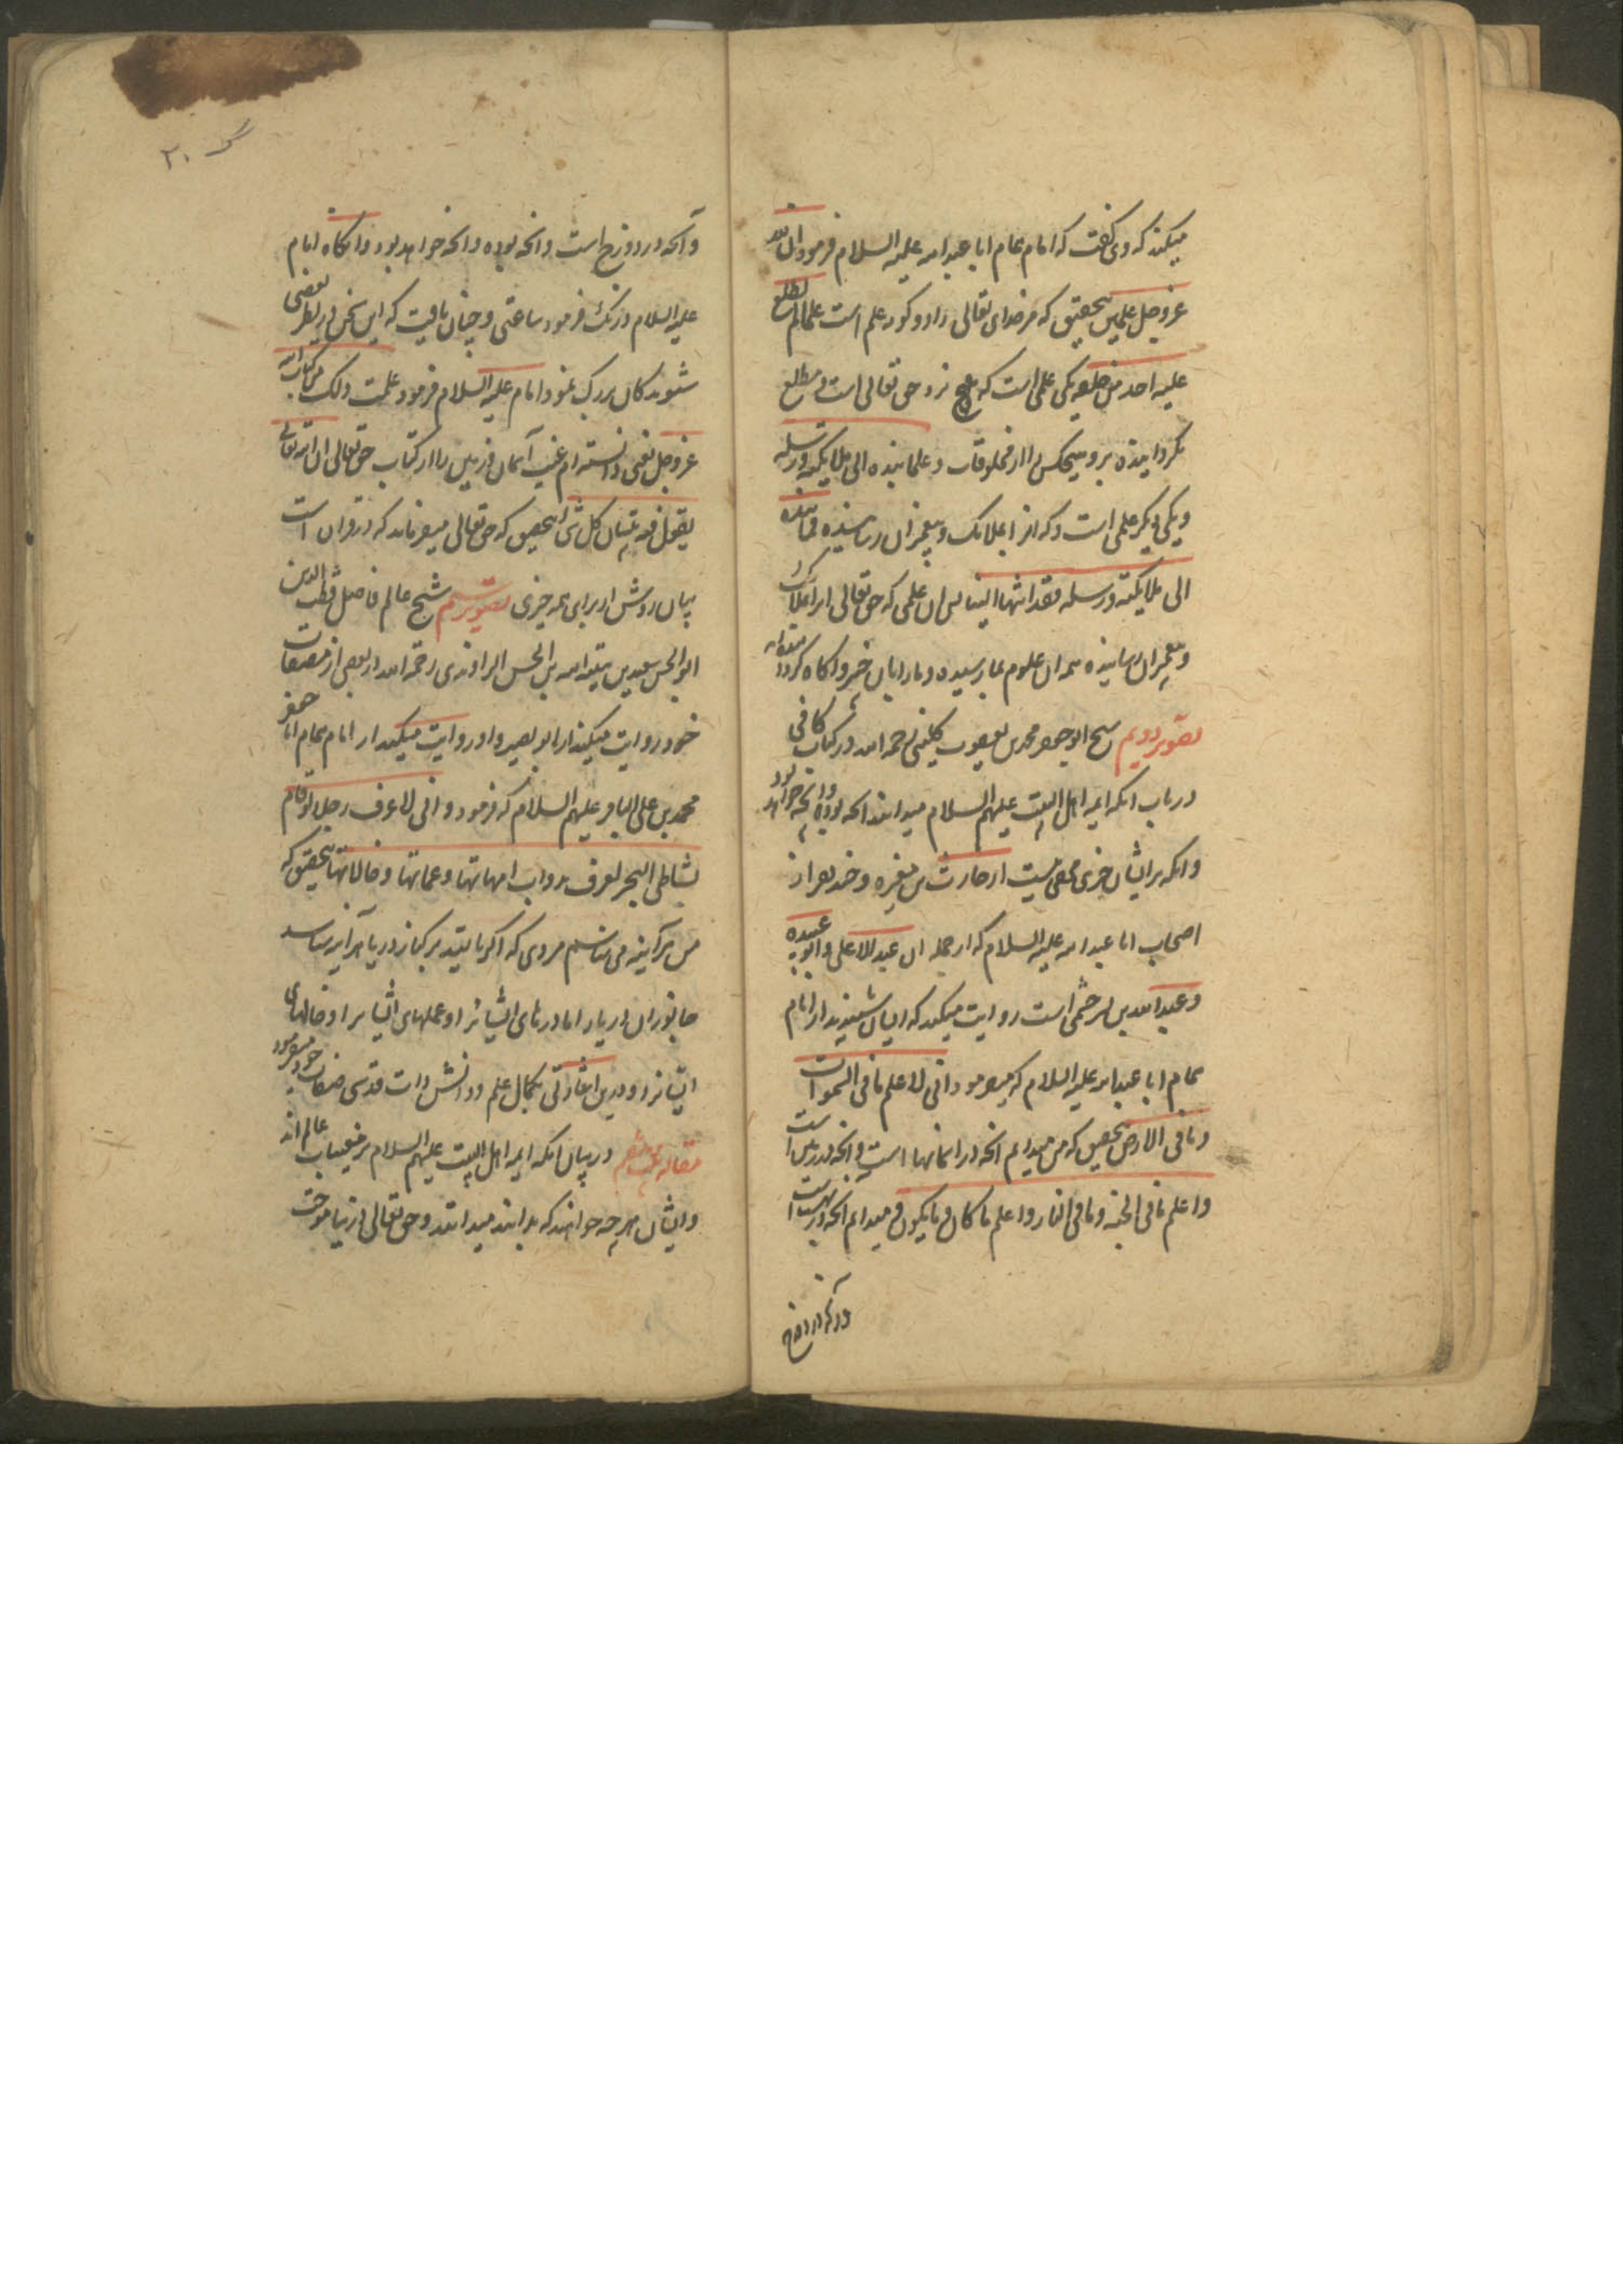 میکند که وی گفت که امام همام ابا عبد الله علیه السلام فرمود ان لله
عز و جل علمین بتحقیق که مر خدای تعالی را دو گونه علم است علما لم یطلع
علیه احد من خلقه یکی علمی است که نزد حق تعالی است و مطلع
نگردانیده برو هیچکس را از مخلوقات و علما نبذه الی ملایکته و رسله
و یکی دیگر علمی است که انرا بملائک و پیغمبران رسانیده فما نبذه
الی ملایکته و رسله فقد انتهی الینا پس ان علمی که حق تعالی انرا بملائک
و پیغمبران رسانیده همه ان علوم بما رسیده و ما را بان خبر و آگاه کردانیده
تصویر دویم شیخ ابو جعفر محمد بن یعقوب کلینی رحمه الله در کتاب کافی
در باب انکه ایمه اهل البیت علیهم السلام میدانند انچه بوده و انچه خواهد بود
و انکه بر ایشان چیزی مخفی نیست از حارث بن مغیره و چند نفر از
اصحاب ابا عبد الله علیه السلام که از جمله ان عبد الاعلی و ابو عبیده
و عبد الله بن بشر خثعمی است روایت میکند که ایشان شنیدند از امام
همام ابا عبد الله علیه السلام که میفرمود انی لاعلم ما فی السموات
و ما فی الارض بتحقیق که من میدانم انچه در اسمانها است و انچه در زمین است
و اعلم ما فی الجنه و ما فی النار و اعلم ما کان و ما یکون و میدانم انچه در بهشت است
و آنچه در دوزخ
۳۰
و آنچه در دوزخ است و انچه بوده و انچه خواهد بود و انگاه امام
علیه السلام درنگ فرمود ساعتی و چنان یافت که این سخن در نظر بعضی
شنوندکان بزرک نمود امام علیه السلام فرمود علمت ذلک من کتاب الله
عز و جل یعنی دانسته ام غیب آسمان و زمین را از کتاب حق تعالی ان الله تعالی
یقول فیه تبیان کل شی بتحقیق که حق تعالی میفرماید که در قران است
بیان روشن از برای همه چیزی تصویر سیم شیخ عالم فاضل قطب الدین
ابو الحسن سعید بن هبة الله بن الحسن الراوندی رحمه الله در بعضی از مصنفات
خود روایت میکند از ابو بصیر و او روایت میکند از امام همام ابا جعفر
محمد بن علی الباقر علیهم السلام که فرمود و انی لاعرف رجلا لو قام
بشاطی البحر لعرف بدواب امهاتها و عماتها و خالاتها بتحقیق که
من هرآینه می شناسم مردی که اگر بایستد بر کنار دریا هرآینه شناسد
جانوران دریا را با مادرهای ایشانرا و عمهای ایشانرا و خالهای
ایشانرا و درین اشارتی بکمال علم و دانش ذات قدسی صفات خود میفرمود
مقاله در بیان انکه ایمه اهل البیت علیهم السلام بر غیبیات عالم اند
و ایشان هرچه خواهند که بدانند میدانند و حق تعالی